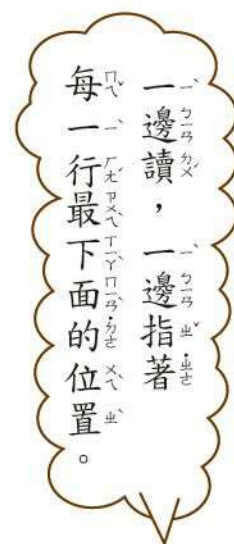 一邊讀，一邊指著
每一行最下面的位置。